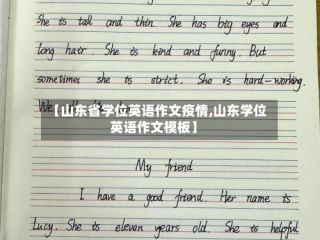 She is tall and thin. She has big eyes and
long hair. She is kind and funny. But
sometimes she is strict. She is hard-working.
We
【山东省学位英语作文疫情,山东学位
英语作文模板】
My friend
I have a good friend. Her name is
Lucy. She is eleven years old. She is helpful